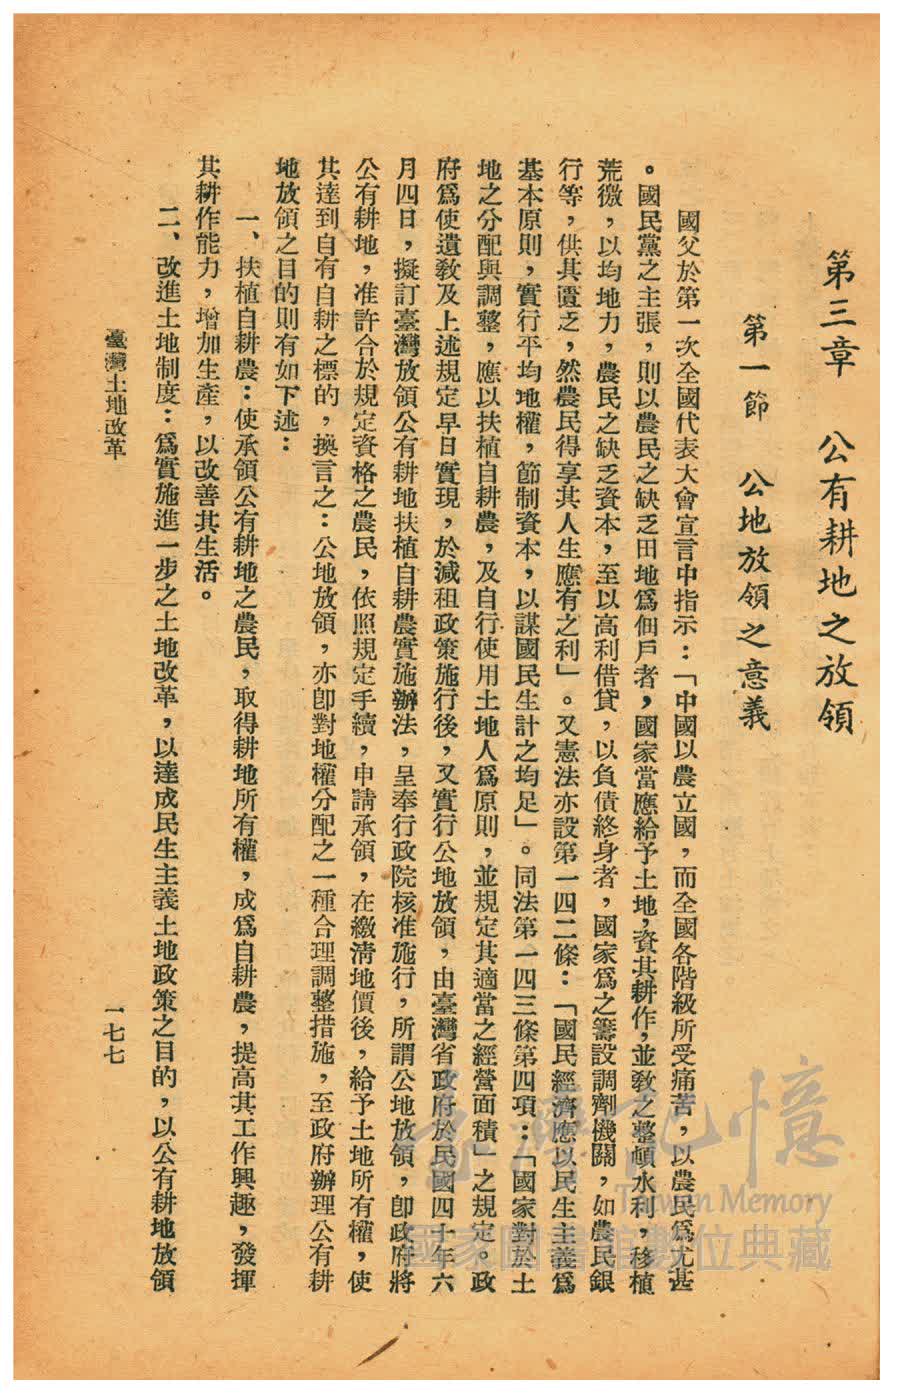 第三章　公有耕地之放領
第一節　公地放領之意義
國父於第一次全國代表大會宣言中指示：「中國以農立國，而全國各階級所受痛苦，以農民爲尤甚
。國民黨之主張，則以農民之缺乏田地爲佃戶者，國家當應給予土地，資其耕作，並敎之整頓水利，移植
荒徼，以均地力，農民之缺乏資本，至以高利借貸，以負債終身者，國家爲之籌設調劑機關，如農民銀
行等，供其匱乏，然農民得享其人生應有之利」。又憲法亦設第一四二條：「國民經濟應以民生主義爲
基本原則，實行平均地權，節制資本，以謀國民生計之均足」。同法第一四三條第四項：「國家對於土
地之分配與調整，應以扶植自耕農，及自行使用土地人爲原則，並規定其適當之經營面積」之規定。政
府爲使遺敎及上述規定早日實現，於減租政策施行後，又實行公地放領，由臺灣省政府於民國四十年六
月四日，擬訂臺灣放領公有耕地扶植自耕農實施辦法，呈奉行政院核准施行，所謂公地放領，卽政府將
公有耕地，准許合於規定資格之農民，依照規定手續，申請承領，在繳淸地價後，給予土地所有權，使
其達到自有自耕之標的，換言之：公地放領，亦卽對地權分配之一種合理調整措施，至政府辦理公有耕
地放領之目的則有如下述：
一、扶植自耕農：使承領公有耕地之農民，取得耕地所有權，成爲自耕農，提高其工作興趣，發揮
其耕作能力，增加生產，以改善其生活。
二、改進土地制度：爲實施進一步之土地改革，以達成民生主義土地政策之目的，以公有耕地放領
臺灣土地改革
一七七
臺灣記憶
Taiwan Memory
國家圖書館數位典藏